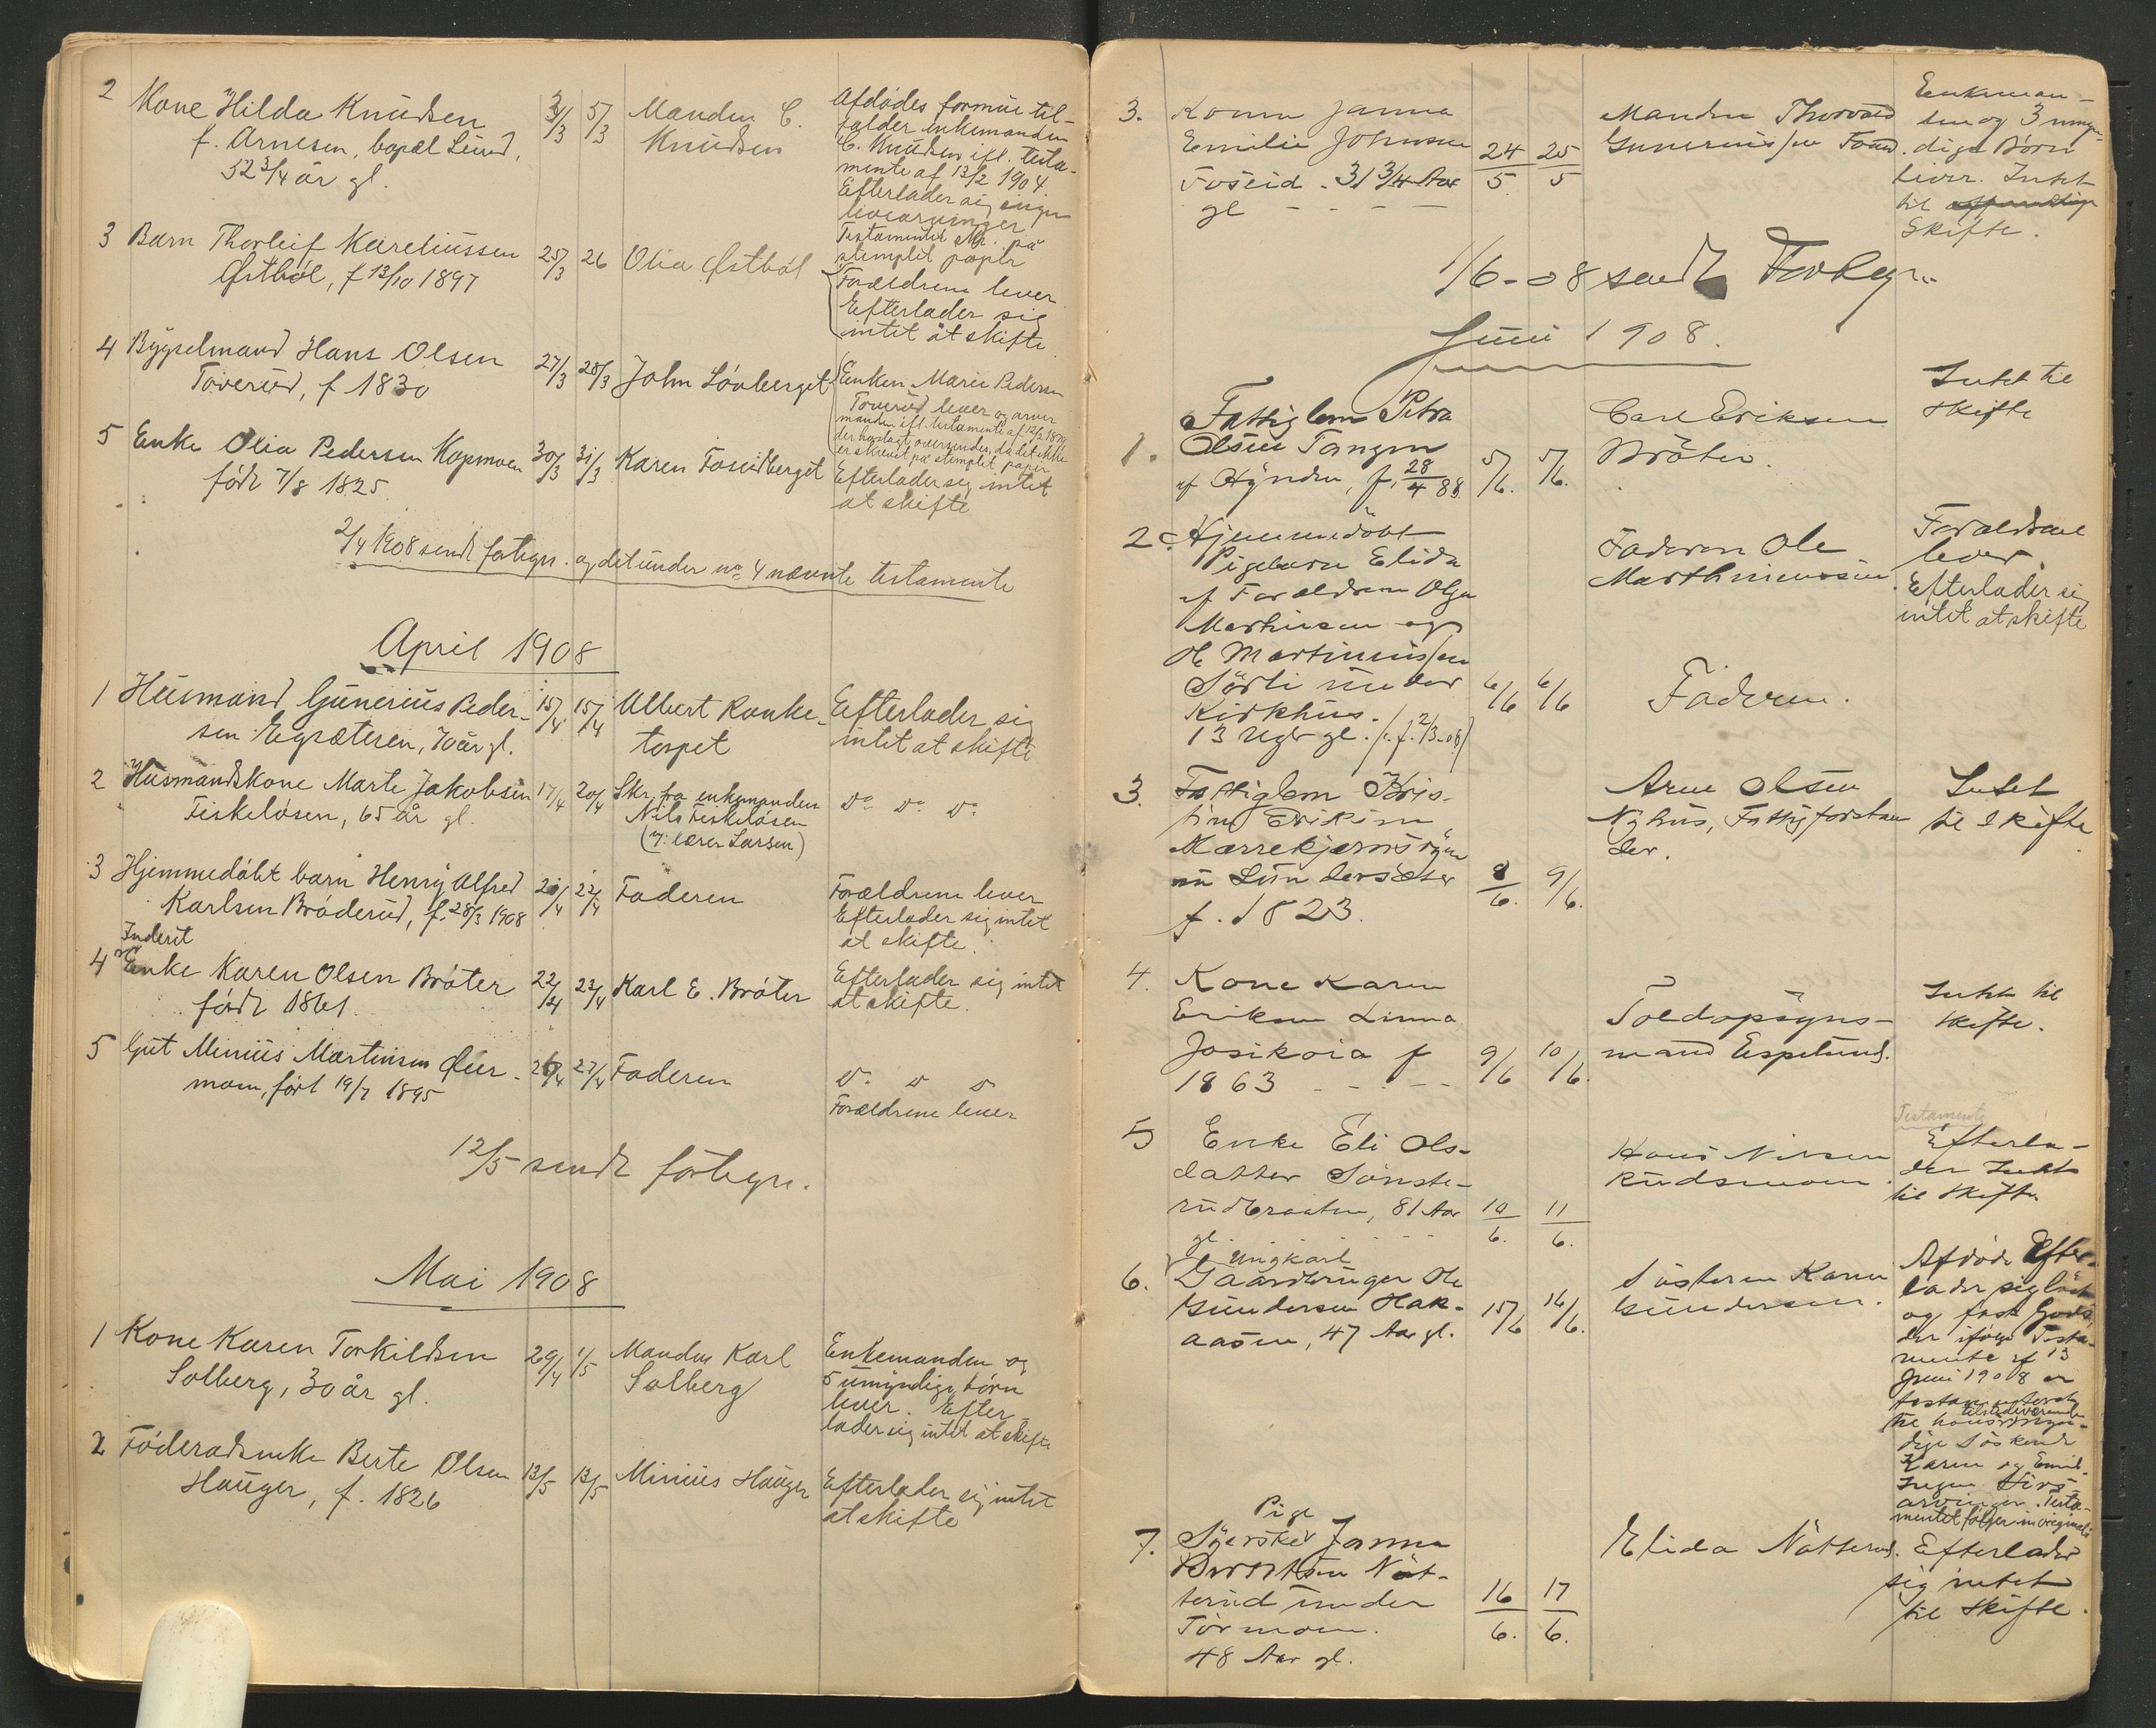 2 Kone Hilda Knudsen 3/3 5/3 Manden C. Knudsen
f. Arnesen, bopæl Lund,
52 3/4 år gl.
Afdødes formue til-
falder enkemanden
C. Knudsen ifl. testa-
mente af 13/2 1904.
Efterlader sig ingen
livsarvinger
Testamentet skr. på
stemplet papir
3 Barn Thorleif Kareliussen 25/3 26 Olia Østbøl
Østbøl, f 13/10 1897
Forældrene lever
Efterlader sig
intet at skifte
4 Bygselmand Hans Olsen 27/3 28/3 John Løvberget
Toverud, f 1830
Enken Marie Pedersen
Toverud lever og arver
manden ifl. testamente af 12/2 1879
der hoslagt oversendes, da det ikke
er skrevet på stemplet papir
5 Enke Olia Pedersen Kopmoen 30/3 31/3 Karen Fosseidberget
født 7/8 1825
Efterlader sig intet
at skifte
2/4 1908 sendt fortegn. og det under no 4 nævnte testamente
April 1908
1 Husmand Gunerius Peder- 15/4 15/4 Albert Ranke- Efterlader sig
sen Egsæteren, 70 år gl. torpet intet at skifte
2 Husmandskone Marte Jakobsen 17/4 20/4 Skr. fra enkemanden
Fiskeløsen, 65 år gl. Nils Fiskeløsen do do do
(v. lærer Larsen)
3 Hjemmedøbt barn Henry Alfred 20/4 22/4 Faderen Forældrene lever
Karlsen Brøderud, f. 28/3 1908 Efterlader sig intet
at skifte
Inderst
4 Enke Karen Olsen Bråter 22/4 22/4 Karl E. Bråter Efterlader sig intet
født 1861 at skifte.
5 Gut Minius Martinsen Øier- 26/4 27/4 Faderen do do do
moen, født 19/7 1895 Forældrene lever
12/5 sendt fortegn.
Mai 1908
1 Kone Karen Torkildsen 29/4 1/5 Manden Karl Enkemanden og
Solberg, 30 år gl. Solberg 5 umyndige børn
lever. Efter-
lader sig intet at skifte
2 Føderådsenke Berte Olsen 13/5 13/5 Minius Hauger Efterlader sig intet
Hauger, f. 1826 at skifte
3. Konen Janna Manden Thorvald
Emilie Johnsen 24/5 25/5 Gunerius/en
31 3/4 Aar
gl - - -
Enkeman-
den og 3 umyn-
dige Børn
lever. Intet
til
Skifte.
1/6-08 sendt Fortegn.
Juni 1908.
1. Fattiglem Petra Carl Eriksen Intet til
Olsen Tangen 5/6. 5/6. Bråten. Skifte
f. 28/4 88.
2. Hjemmedøbt Faderen Ole Forældrene
Pigebarn Elida Marthiniussen. lever
af Forældrene Olga Efterlader sig
Marthinsen og intet at skifte
Ole Martinius/en
Sørli under 6/6 6/6 Faderen.
Kirkhus.
13 Uger gl. (f. 2/3-08)
3. Fattiglem Kris- Arne Olsen Intet
tine Eriksen Nyhus, Fattigforstan- til Skifte
der.
Lundersæter 8/6. 9/6.
f. 1823.
4. Kone Karen Toldopsyns- Intet til
Eriksen Linna mand Espelund. Skifte.
f 9/6 10/6.
1863 - - - -
Testamente
5 Enke Eli Ols- Hans Nilsen Efterla-
datter Sønste- Rudsmoen. der Intet
rudbraaten, 81 Aar 10/6. 11/6. til Skifte
gl.
Ungkarl
6. Gaardbruger Ole Søsteren Karen
Gundersen Hak- 15/6 16/6. Gundersen.
aasen, 47 Aar gl.
Afdøde Efter-
lader sig løst
og fast Gods,
der ifølge Testa-
mente af 13
Juni 1908 er
til hans
tilstedeværende
dige Søskende
Karen og Emil.
Ingen Livs-
arvinger. Testa-
mentet følger in originali
Pige
7. Syerske Janna Elida Nøtterud. Efterlader
Nøt- sig intet
terud under 16/6. 17/6. til Skifte.
Tørmoen.
48 Aar gl.